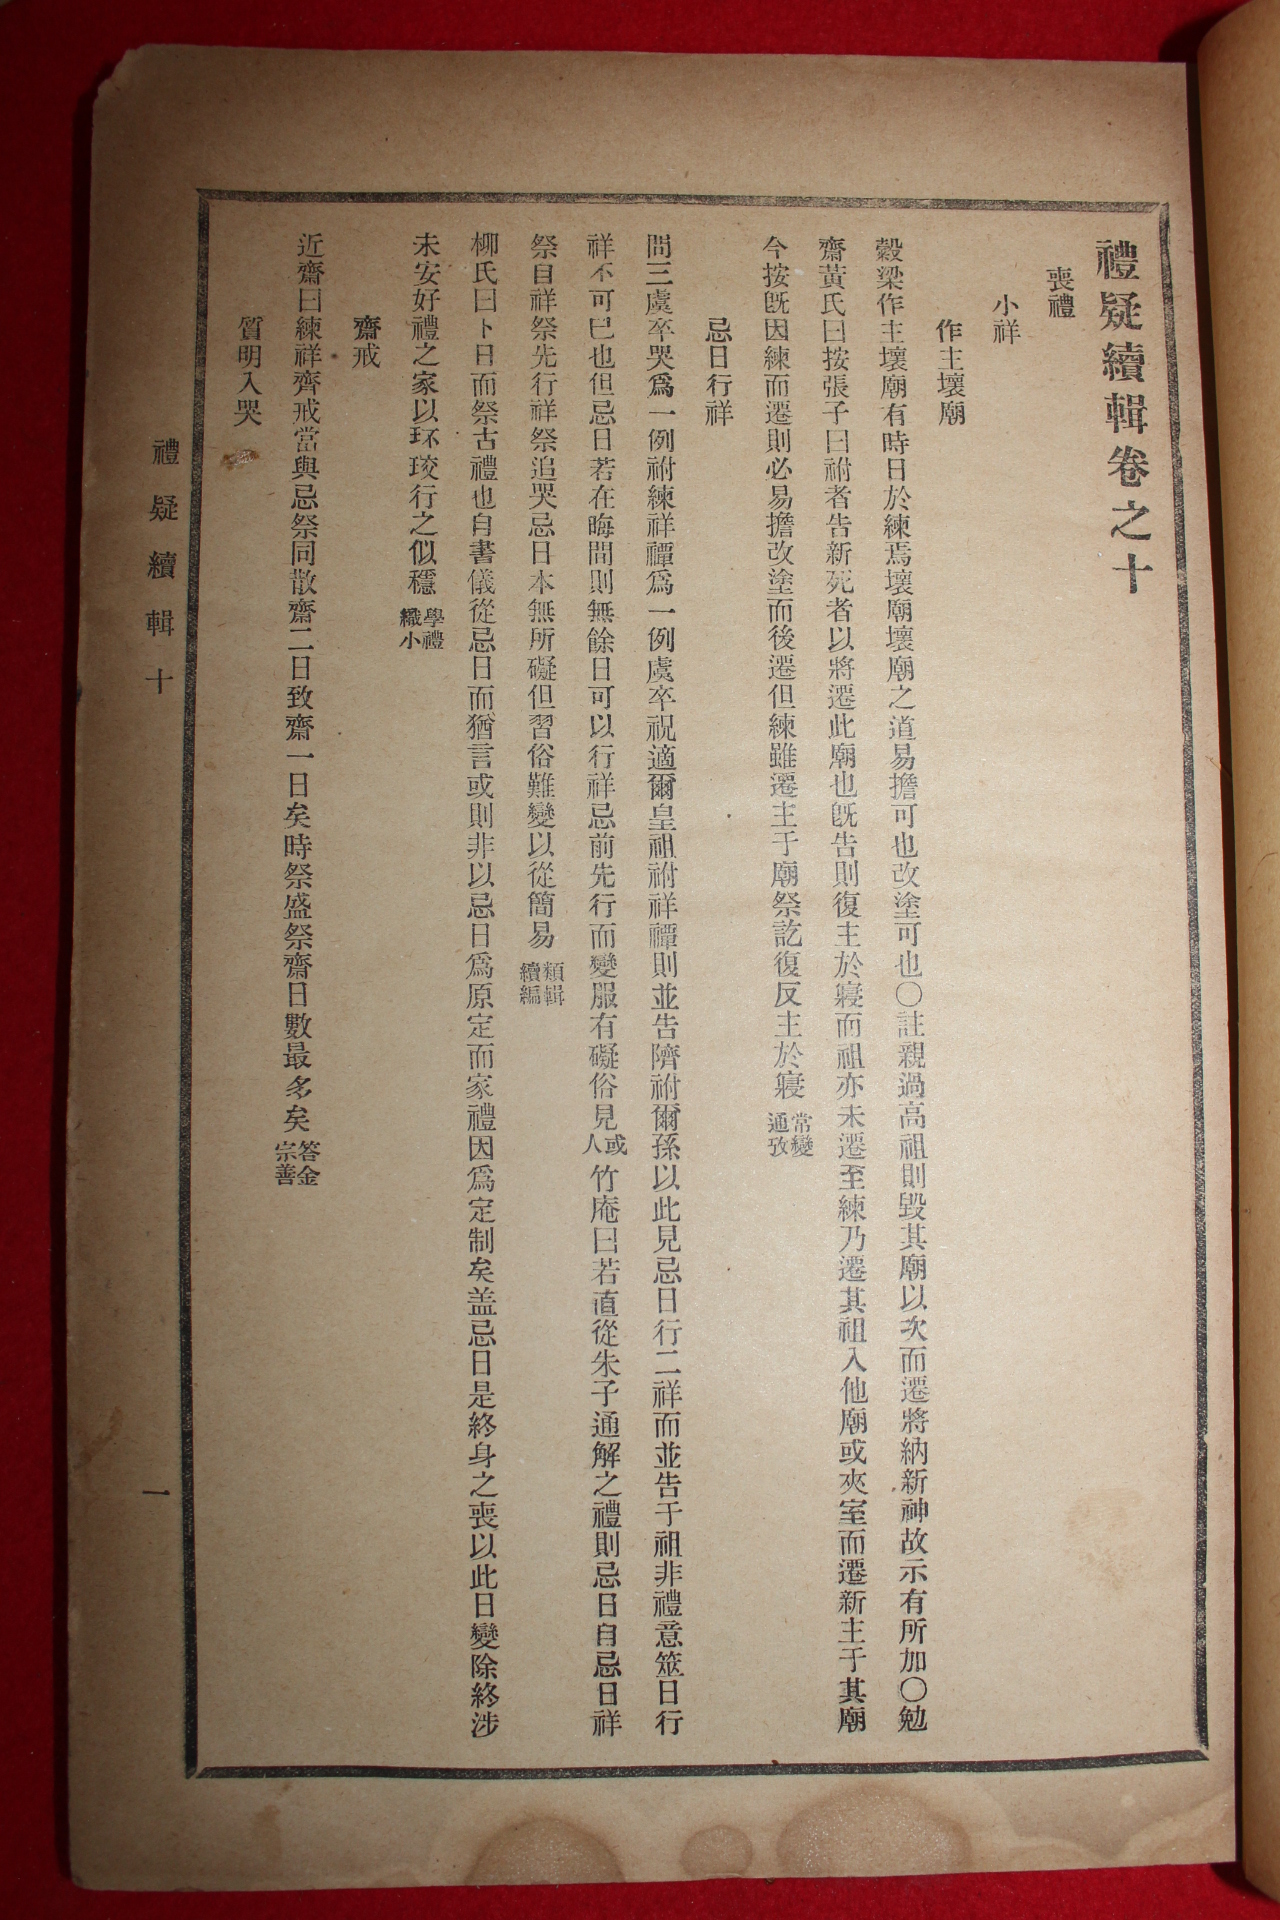 禮疑續輯卷之十
喪禮
小祥
作主壞廟
穀梁作主壞廟有時日於練焉壞廟壞廟之道易擔可也改塗可也〇註親過高祖則毀其廟以次而遷將納新神故示有所加〇勉
齋黃氏曰按張子曰祔者告新死者以將遷此廟也旣告則復主於寢而祖亦未遷至練乃遷其祖入他廟或夾室而遷新主于其廟
今按旣因練而遷則必易擔改塗而後遷但練雖遷主于廟祭訖復反主於寢 常變通攷
忌日行祥
問三虞卒哭爲一例祔練祥禫爲一例虞卒祝適爾皇祖祔祥禫則並告隮祔爾孫以此見忌日行二祥而並告于祖非禮意筮日行
祥不可已也但忌日若在晦間則無餘日可以行祥忌前先行而變服有礙俗見 或人 竹庵曰若直從朱子通解之禮則忌日自忌日祥
祭自祥祭先行祥祭追哭忌日本無所礙但習俗難變以從簡易 類輯續編
柳氏曰卜日而祭古禮也自書儀從忌日而猶言或則非以忌日爲原定而家禮因爲定制矣盖忌日是終身之喪以此日變除終涉
未安好禮之家以环珓行之似穩 學禮纖小
齋戒
近齋曰練祥齊戒當與忌祭同散齋二日致齋一日矣時祭盛祭齋日數最多矣 答金宗善
質明入哭
禮疑續輯十
一